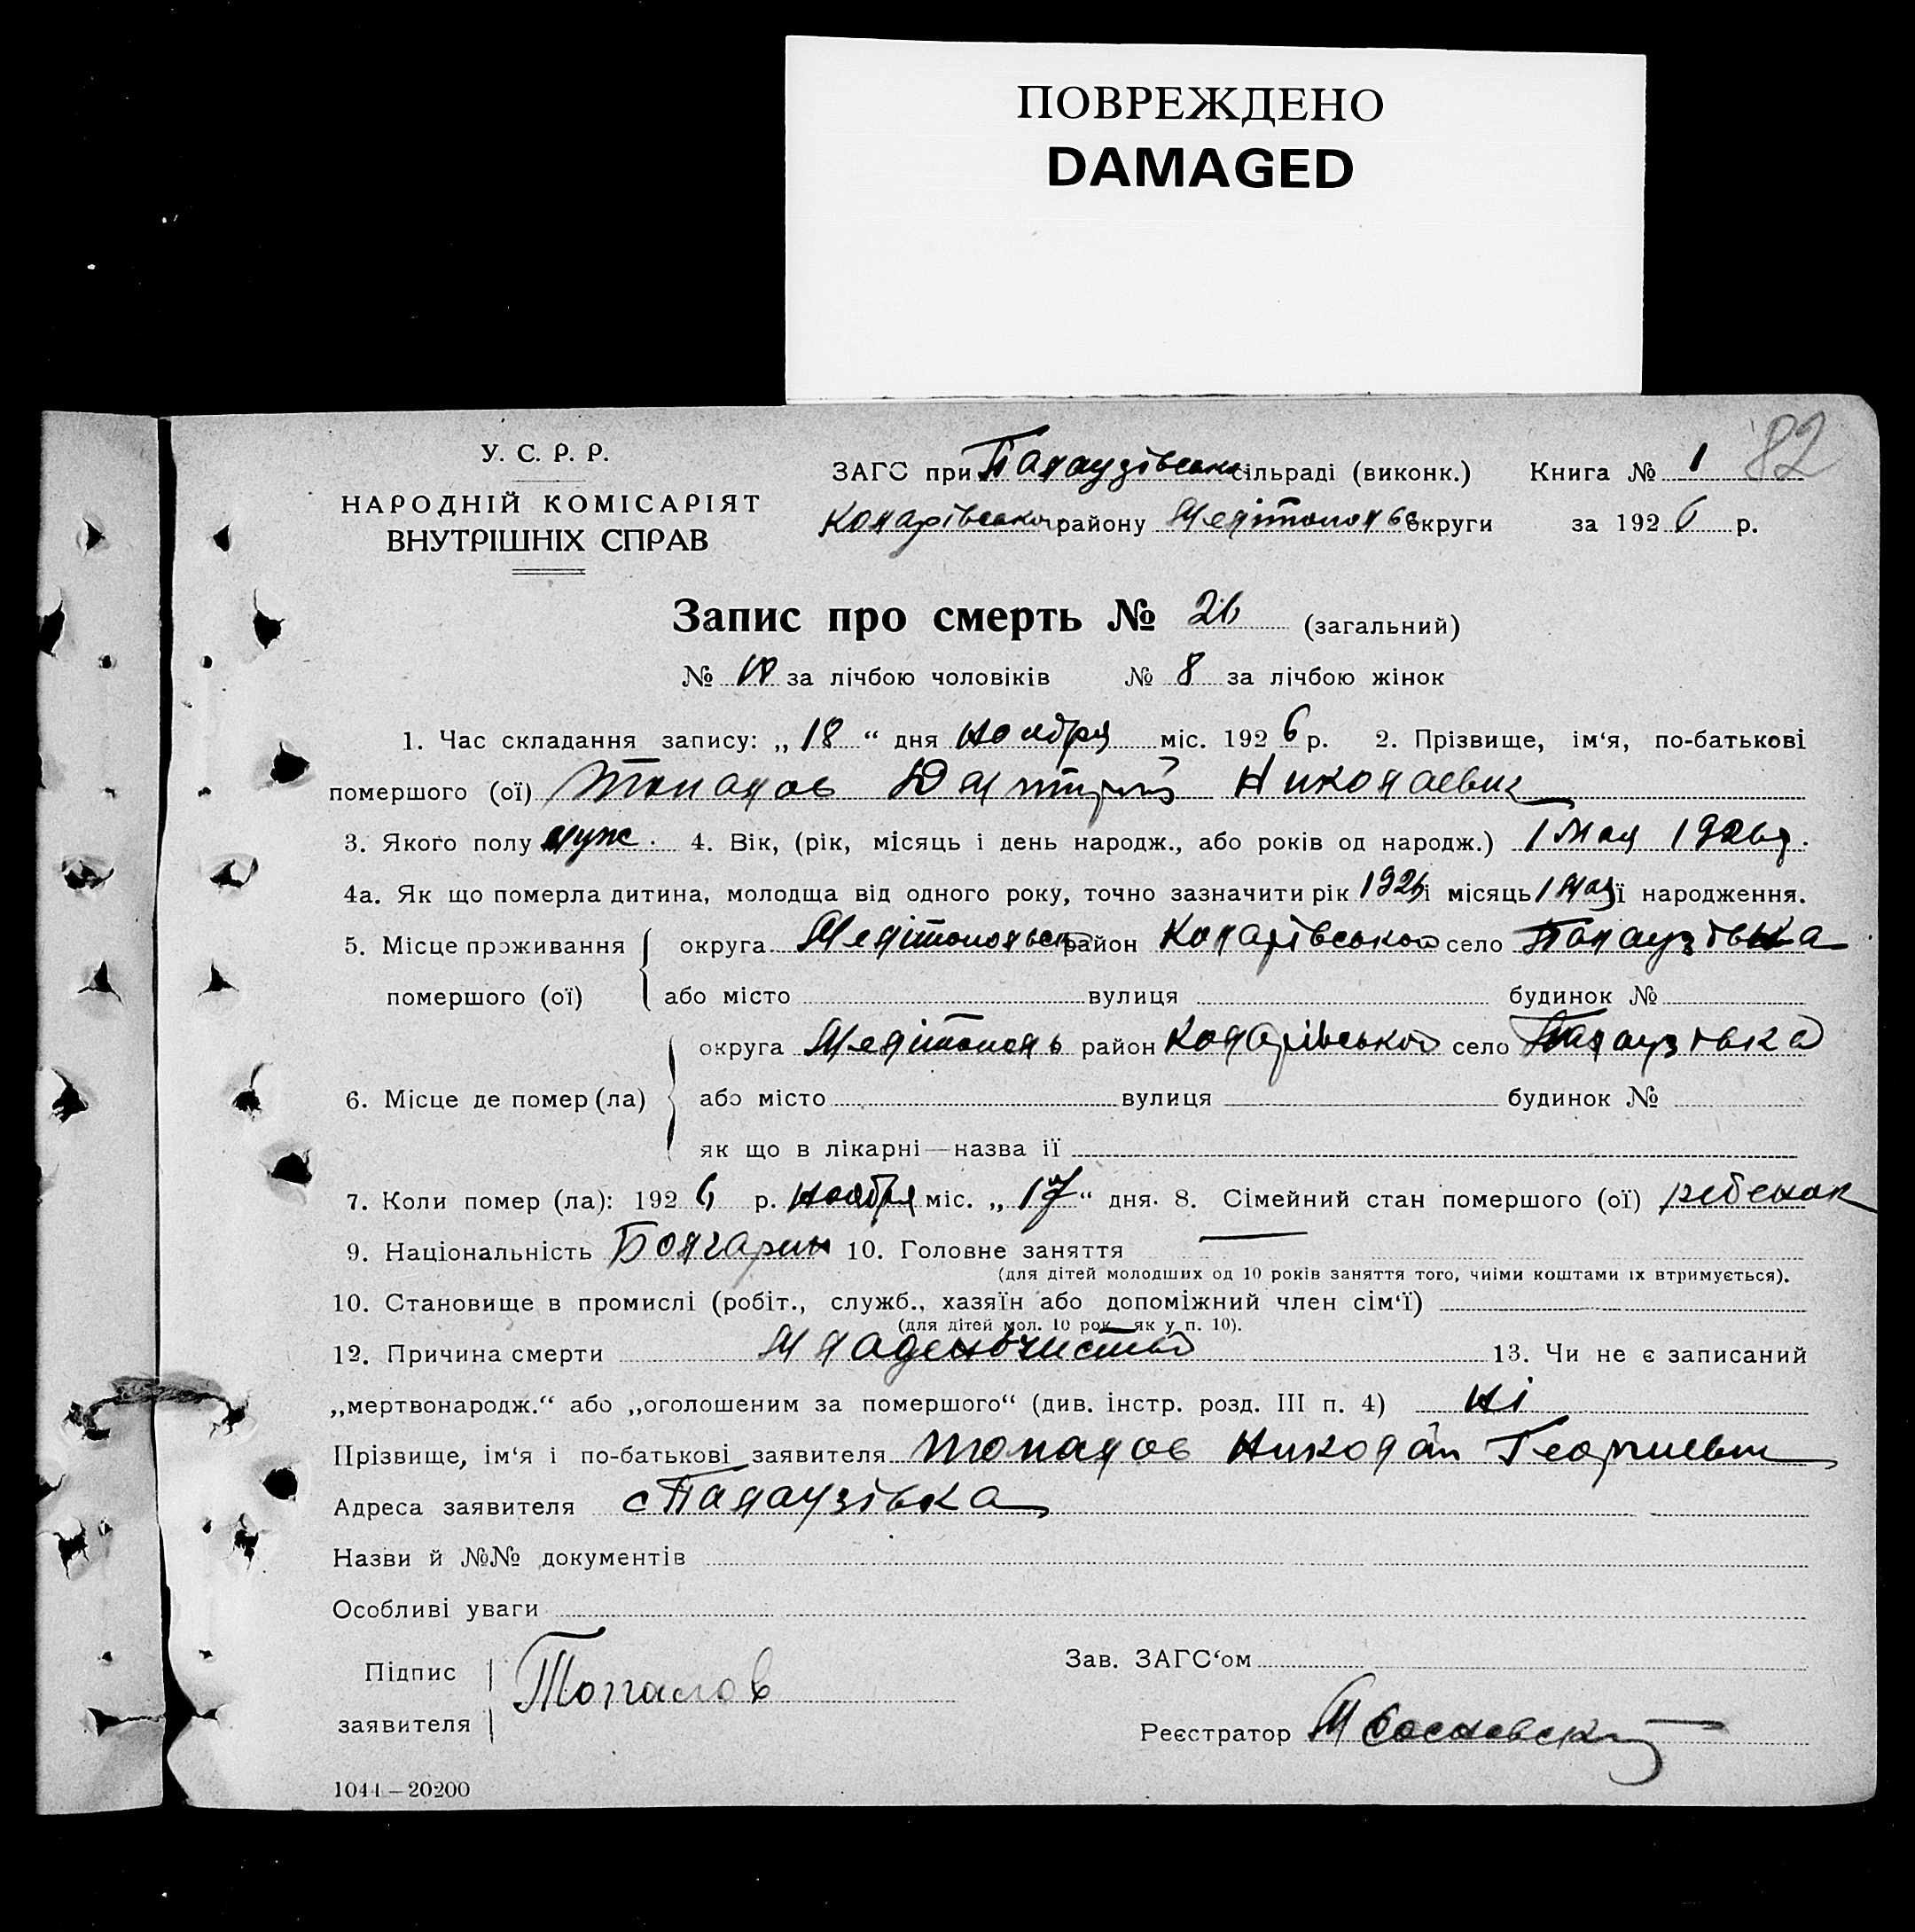 ПОВРЕЖДЕНО
DAMAGED
82
У. С. Р. Р.
НАРОДНІЙ КОМІСАРІЯТ
ВНУТРІШНІХ СПРАВ
ЗАГС при Палаузівськ. сільраді (виконк.) Книга № 1
Коларівсько району Мелітопольс округи за 1926 р.
Запис про смерть № 26 (загальний)
№ 18 за лічбою чоловіків № 8 за лічбою жінок
1. Час складання запису: „18“ дня ноября міс. 1926 р. 2. Прізвище, ім‘я, по-батькові
помершого (ої) Топалов Дмитрий Николаевич
3. Якого полу муж. 4. Вік, (рік, місяць і день народж., або років од народж.) 1 мая 1926 г.
4а. Як що померла дитина, молодща від одного року, точно зазначити рік 1926 і місяць 1 мая її народження.
5. Місце проживання округа Мелітопольськ район Коларівськой село Палаузівка
помершого (ої) або місто вулиця будинок №
округа Мелітополь район Коларівськой село Палаузівка
6. Місце де помер (ла) або місто вулиця будинок №
як що в лікарні—назва її
7. Коли помер (ла): 1926 р. ноября міс. „17“ дня. 8. Сімейний стан помершого (ої) ребенок
9. Національність Болгарин 10. Головне заняття —
(для дітей молодших од 10 років заняття того, чиїми коштами їх втримується).
10. Становище в промислі (робіт., служб., хазяїн або допоміжний член сім‘ї)
(для дітей мол. 10 рок. як у п. 10).
12. Причина смерти Младеночиство 13. Чи не є записаний
„мертвонародж.“ або „оголошеним за помершого“ (див. інстр. розд. III п. 4) ні
Прізвище, ім‘я і по-батькові заявителя Топалов Николай Георгиевич
Адреса заявителя с Палаузівка
Назви й №№ документів
Особливі уваги
Підпис заявителя Топалов
Зав. ЗАГС‘ом
Реєстратор
1044—20200